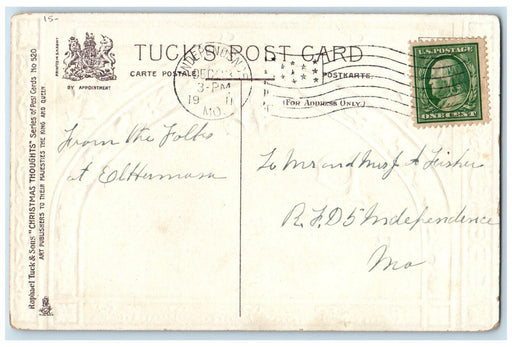 15-
TUCK'S POST CARD
CARTE POSTALE
POSTKARTE.
(FOR ADDRESS ONLY.)
BY APPOINTMENT
Raphael Tuck & Sons' "CHRISTMAS THOUGHTS" Series of Post Cards No 520
ART PUBLISHERS TO THEIR MAJESTIES THE KING AND QUEEN
INDEPENDENCE
DEC
3-PM
19
MO.
U.S. POSTAGE
ONE CENT
From the Folks
at
To Mr and Mrs J A Fisher
R.F.D 5 Independence
Mo